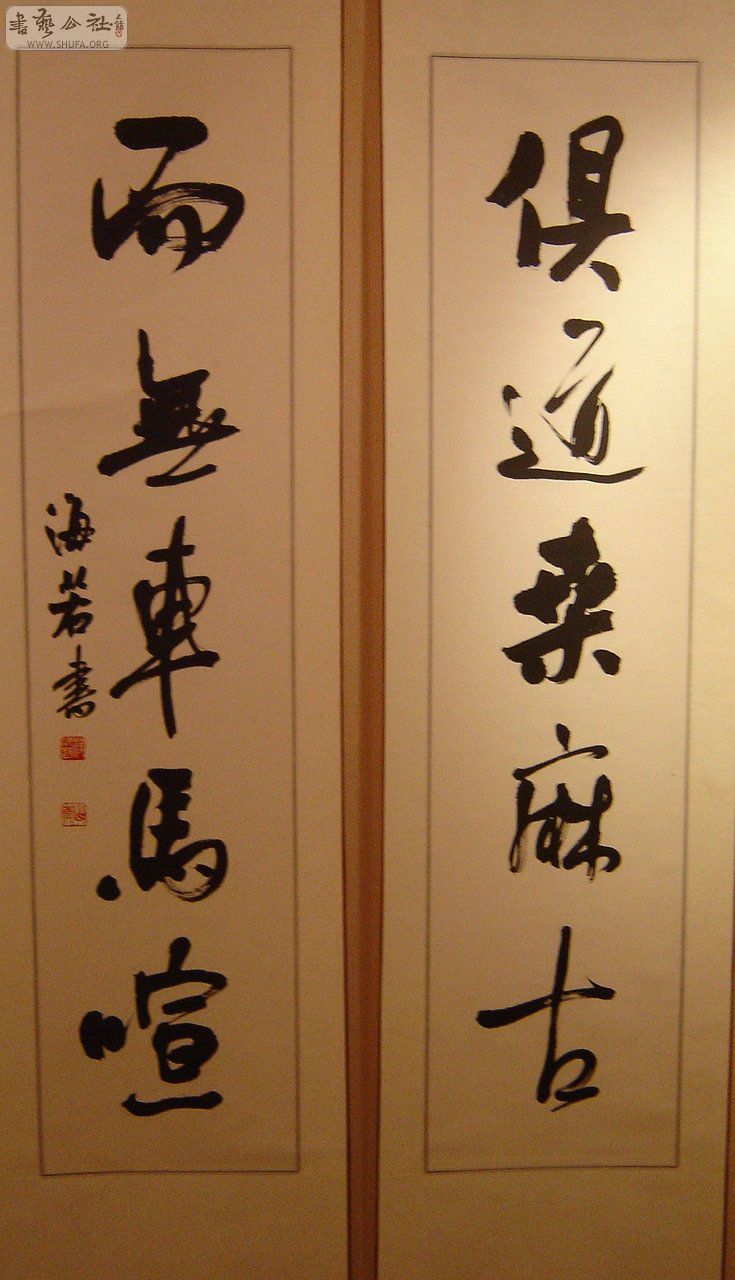 書藝公社
WWW.SHUFA.ORG
俱道桑麻古
而無車馬喧
海若書